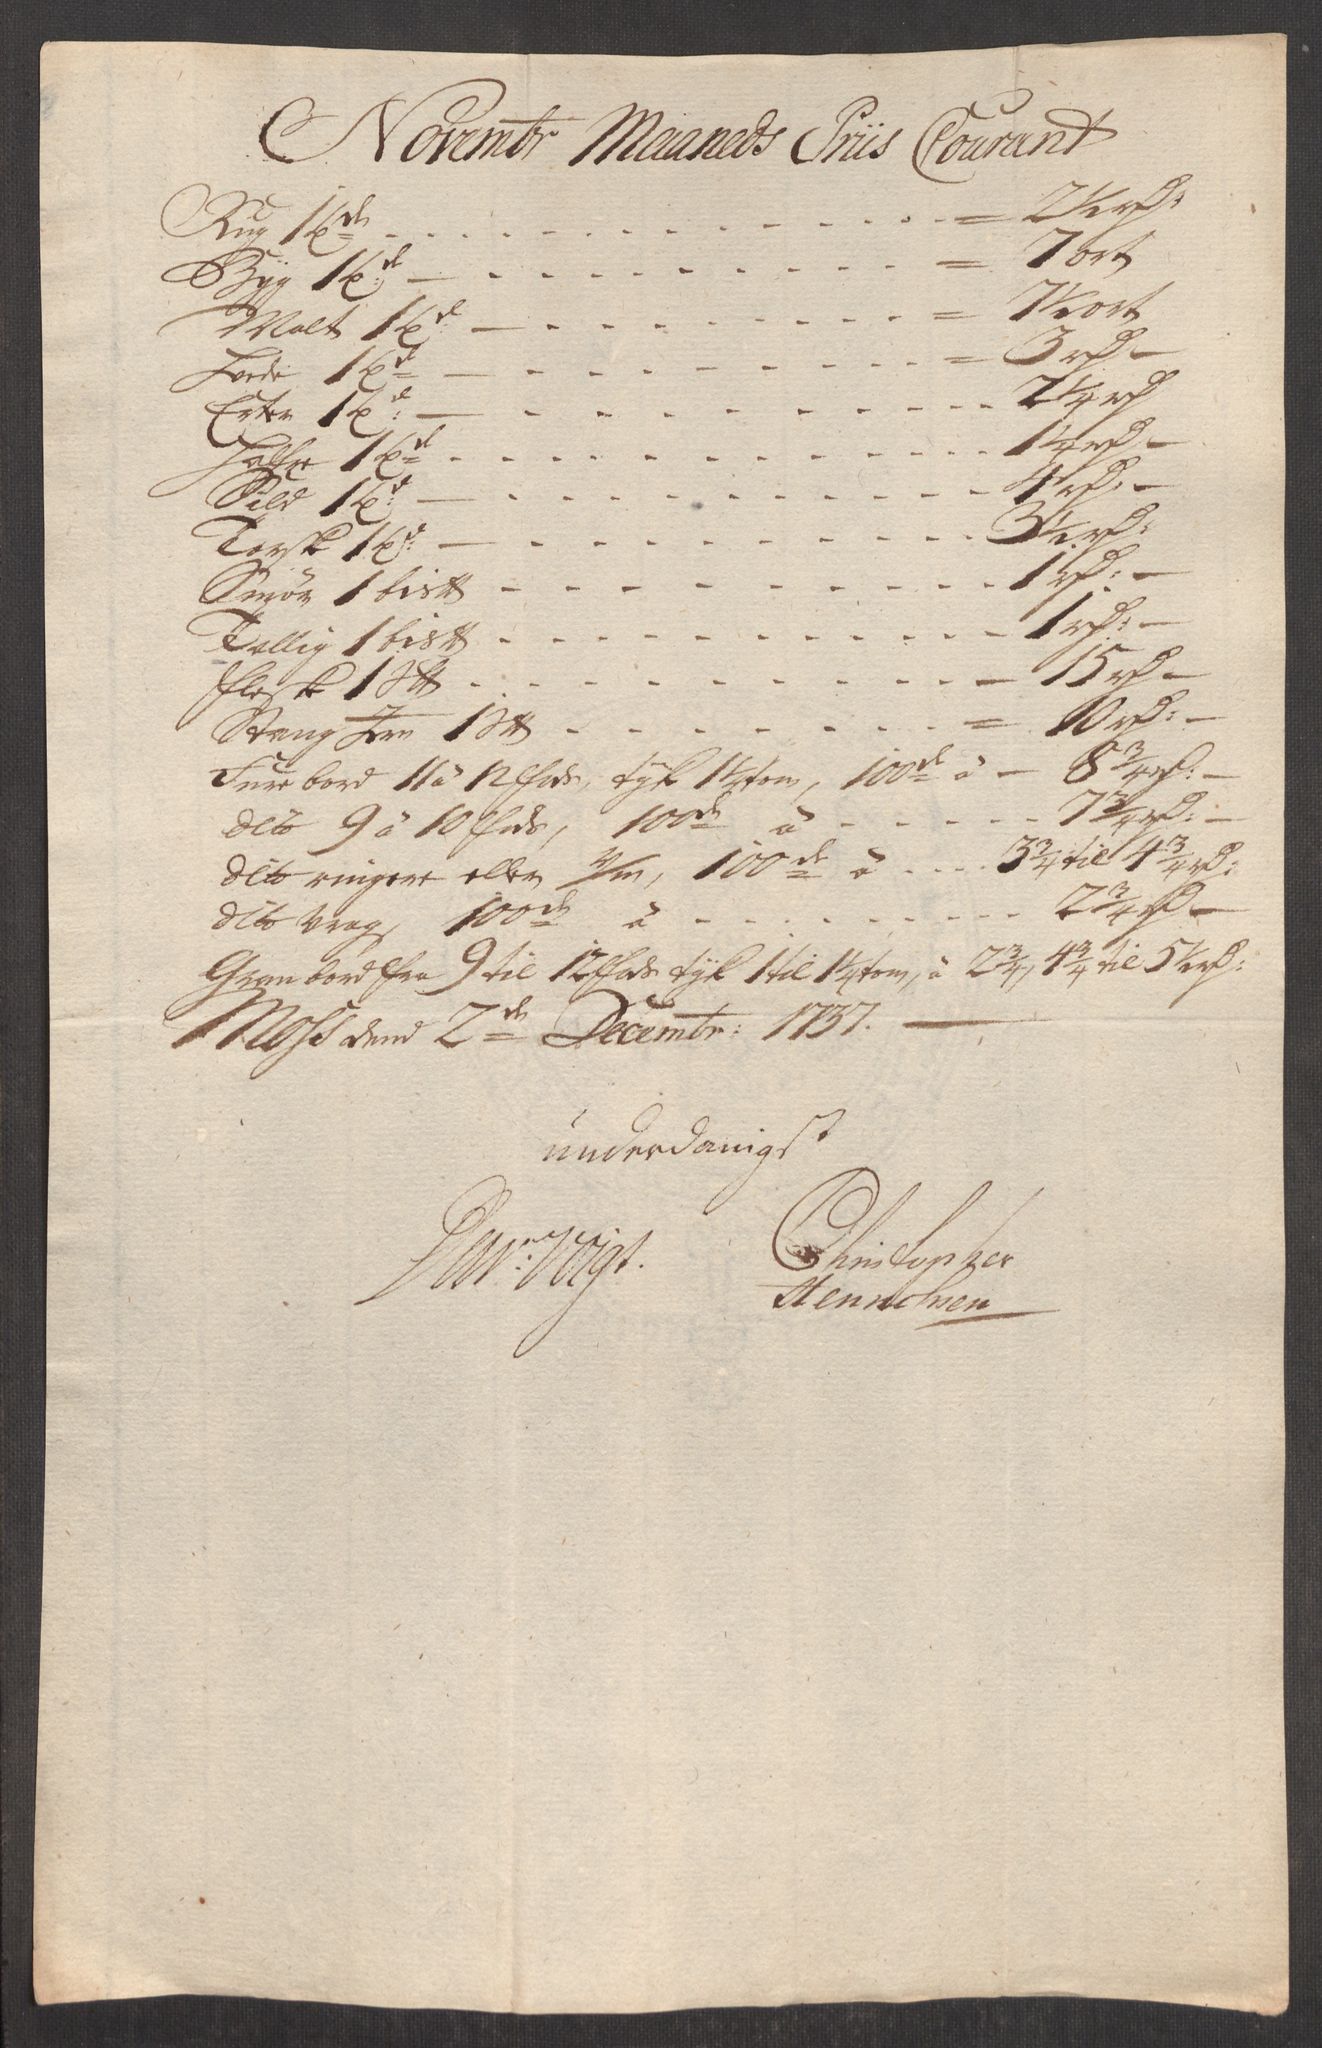 Novembr Maaneds Priis Courant
Rug 1 tde - - - 2½ rd:
Byg 1 td: - - - 7 ort
Malt 1 td: - - - 7½ ort
Hvede 1 td - - - 3 rd -
Erter 1 td: - - - 2¼ rd
Hafre 1 td - - - 1¼ rd -
Sild 1 td: - - - 4 rd: -
Torsk 1 td: - - - 3½ rd:
Smør 1 bistt - - - 1 rd: -
Tallig 1 bistt - - - 1 rd: -
Flesk 1 Stt - - - 15 rd -
Stang Jern 1 Stt - - - 10 rd: -
Fure bord 11 à 12 fods, tyk 1¼ tom, 100de à - 8¾ rd: -
dito 9 à 10 fods, 100de à - - - 7¾ rd: -
dito ringere eller 100de à - - - 3¾ til 4¾ rd:
dito Vrag, 100de à - - - 2¾ rd -
Gran bord fra 9 til 12 fods tyk 1 til 1¼ tom, à 2¾, 4¾ til 5½ rd:
Moss dend 2de Decembr: 1737.
underdanigst
Voigt. Christopher
Hennichsen